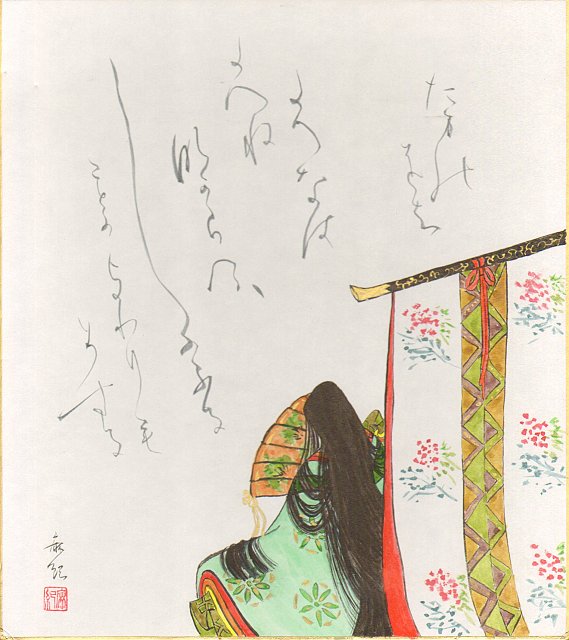 た万の
をよ
たえなは
たえね
な可らへハ
しのふる
ことの
よわりも
そする